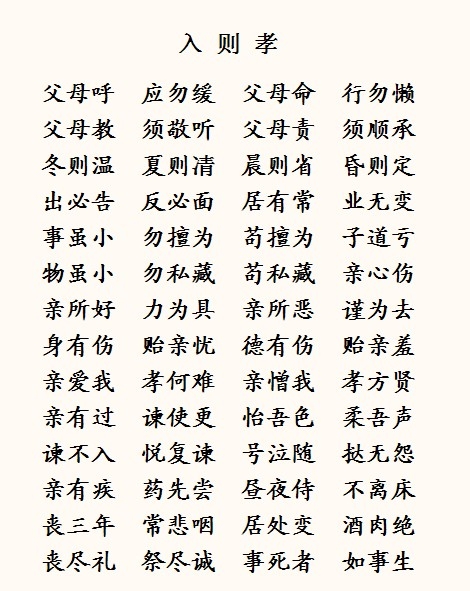 入则孝
父母呼 应勿缓 父母命 行勿懒
父母教 须敬听 父母责 须顺承
冬则温 夏则凊 晨则省 昏则定
出必告 反必面 居有常 业无变
事虽小 勿擅为 苟擅为 子道亏
物虽小 勿私藏 苟私藏 亲心伤
亲所好 力为具 亲所恶 谨为去
身有伤 贻亲忧 德有伤 贻亲羞
亲爱我 孝何难 亲憎我 孝方贤
亲有过 谏使更 怡吾色 柔吾声
谏不入 悦复谏 号泣随 挞无怨
亲有疾 药先尝 昼夜侍 不离床
丧三年 常悲咽 居处变 酒肉绝
丧尽礼 祭尽诚 事死者 如事生